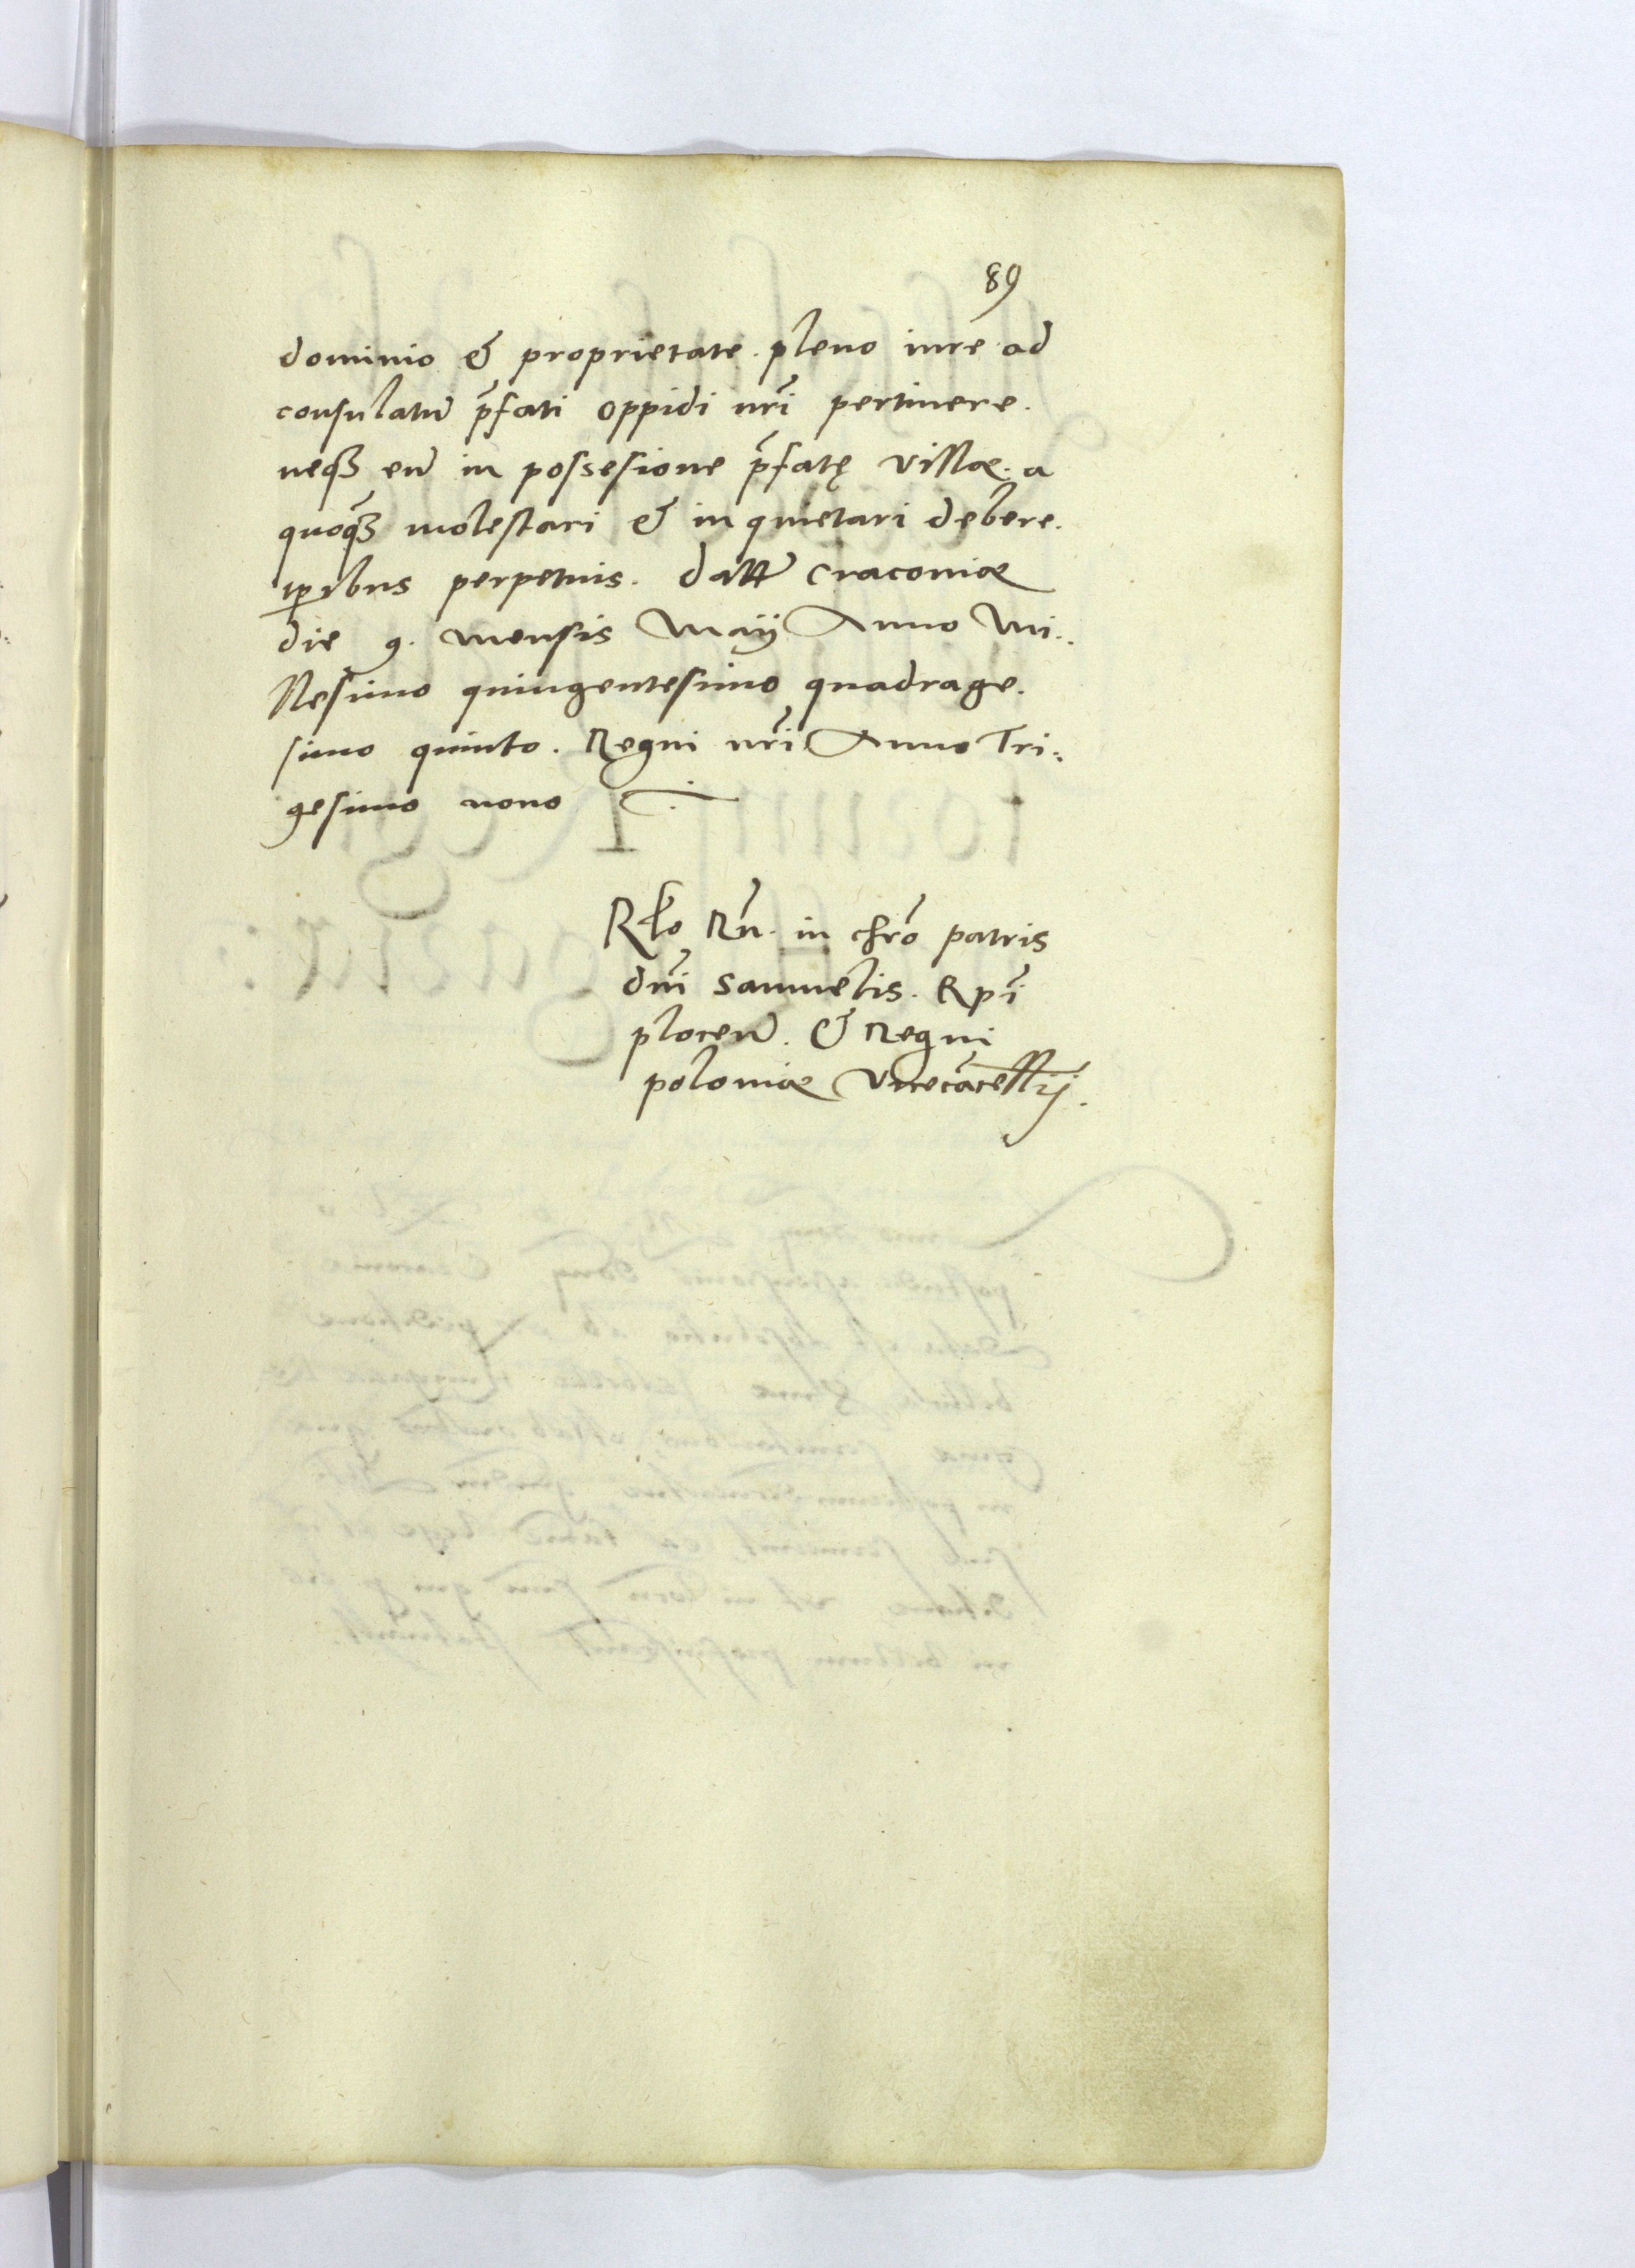 89
dominio & proprietate. pleno iure ad
consulatū p̄fati oppidi nr̄i pertinere.
neqꝫ eū in possesione p̄fatę villæ. a
quoqꝫ molestari & in quietari debere.
tꝑibus perpetuis. datt Cracoviæ
die 9. mensis Maÿ Anno Mi..
llesimo quingentesimo quadrage.
simo quinto. Regni nr̄i Anno Tri:
gesimo nono
Rl̄o Rn̄. in chr̄o patris
dn̄i Samuelis. Epī
plocen̄. & Regni
poloniæ Vicecācellrij.